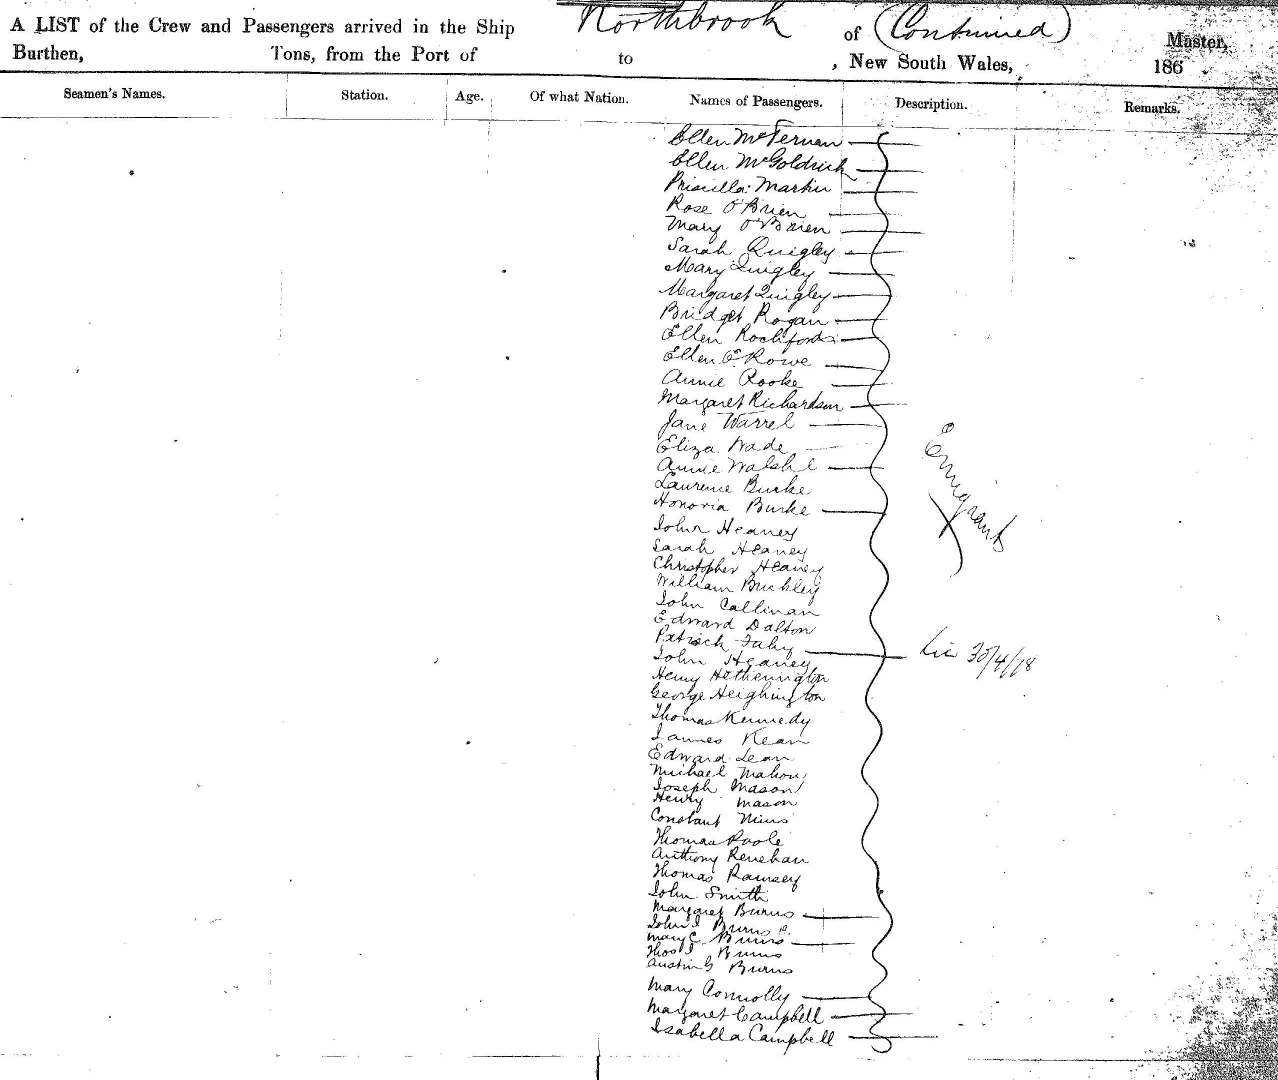 A LIST of the Crew and Passengers arrived in the Ship Northbrook of (Continued) Master,
Burthen, Tons, from the Port of to , New South Wales, 186
Seamen's Names. Station. Age. Of what Nation. Names of Passengers. Description. Remarks.
Ellen McTernan
Ellen McGoldrick
Priscilla Martin
Rose O'Brien
Mary O'Brien
Sarah Quigley
Mary Quigley
Margaret Quigley
Bridget Rogan
Ellen Rochford
Ellen E. Rowe
Annie Rooke
Margaret Richardson
Jane Warrel
Eliza Wade
Annie Walshe
Laurence Burke
Honoria Burke
John Heaney
Sarah Heaney
Christopher Heaney
William Buckley
John Callinan
Edward Dalton
Patrick Fahy
John Heaney
Henry Hetherington
George Heighington
Thomas Kennedy
James Kean
Edward Lean
Michael Mahon
Joseph Mason
Henry Mason
Constant Nius
Thomas Poole
Anthony Renehan
Thomas Ramsey
John Smith
Margaret Burns
John J Burns
Mary C Burns
Thos J Burns
Austin G Burns
Mary Connolly
Margaret Campbell
Isabella Campbell
Emigrants
30/4/78